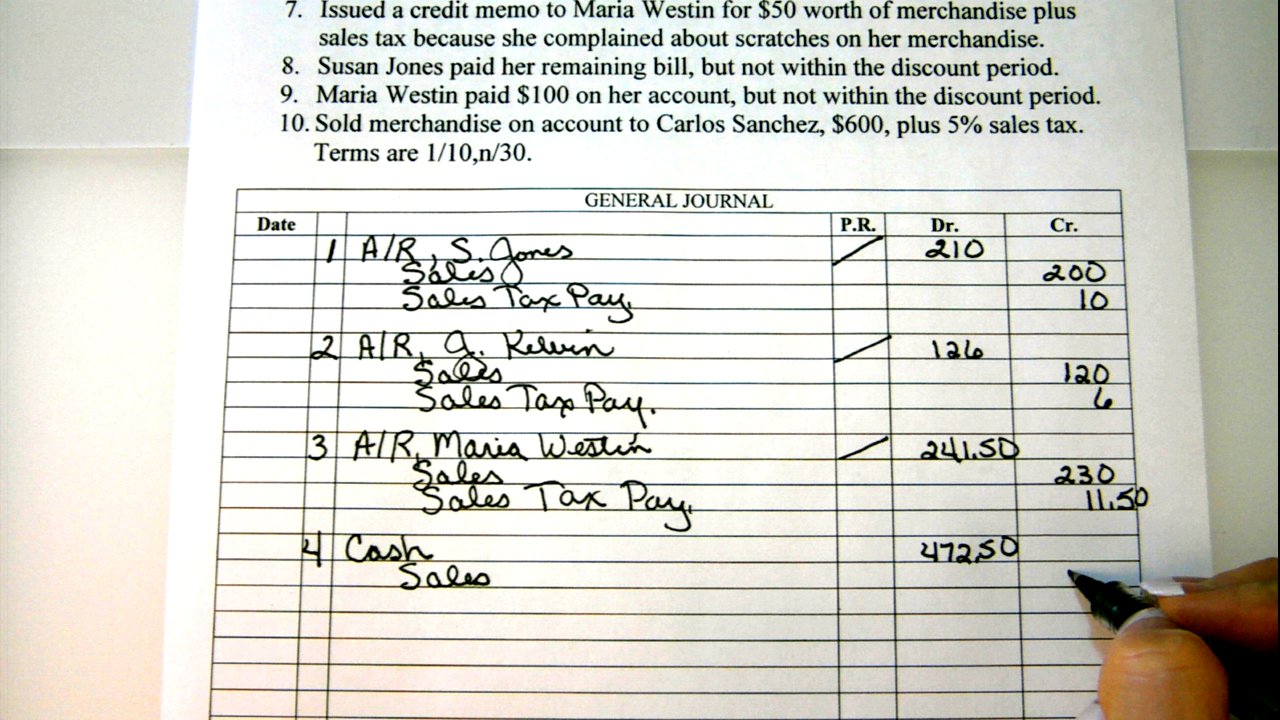 7. Issued a credit memo to Maria Westin for $50 worth of merchandise plus
sales tax because she complained about scratches on her merchandise.
8. Susan Jones paid her remaining bill, but not within the discount period.
9. Maria Westin paid $100 on her account, but not within the discount period.
10. Sold merchandise on account to Carlos Sanchez, $600, plus 5% sales tax.
Terms are 1/10,n/30.
GENERAL JOURNAL
Date P.R. Dr. Cr.
1 A/R, S. Jones 210
Sales 200
Sales Tax Pay. 10
2 A/R, J. Kelvin 126
Sales 120
Sales Tax Pay. 6
3 A/R, Maria Westin 241.50
Sales 230
Sales Tax Pay. 11.50
4 Cash 472.50
Sales